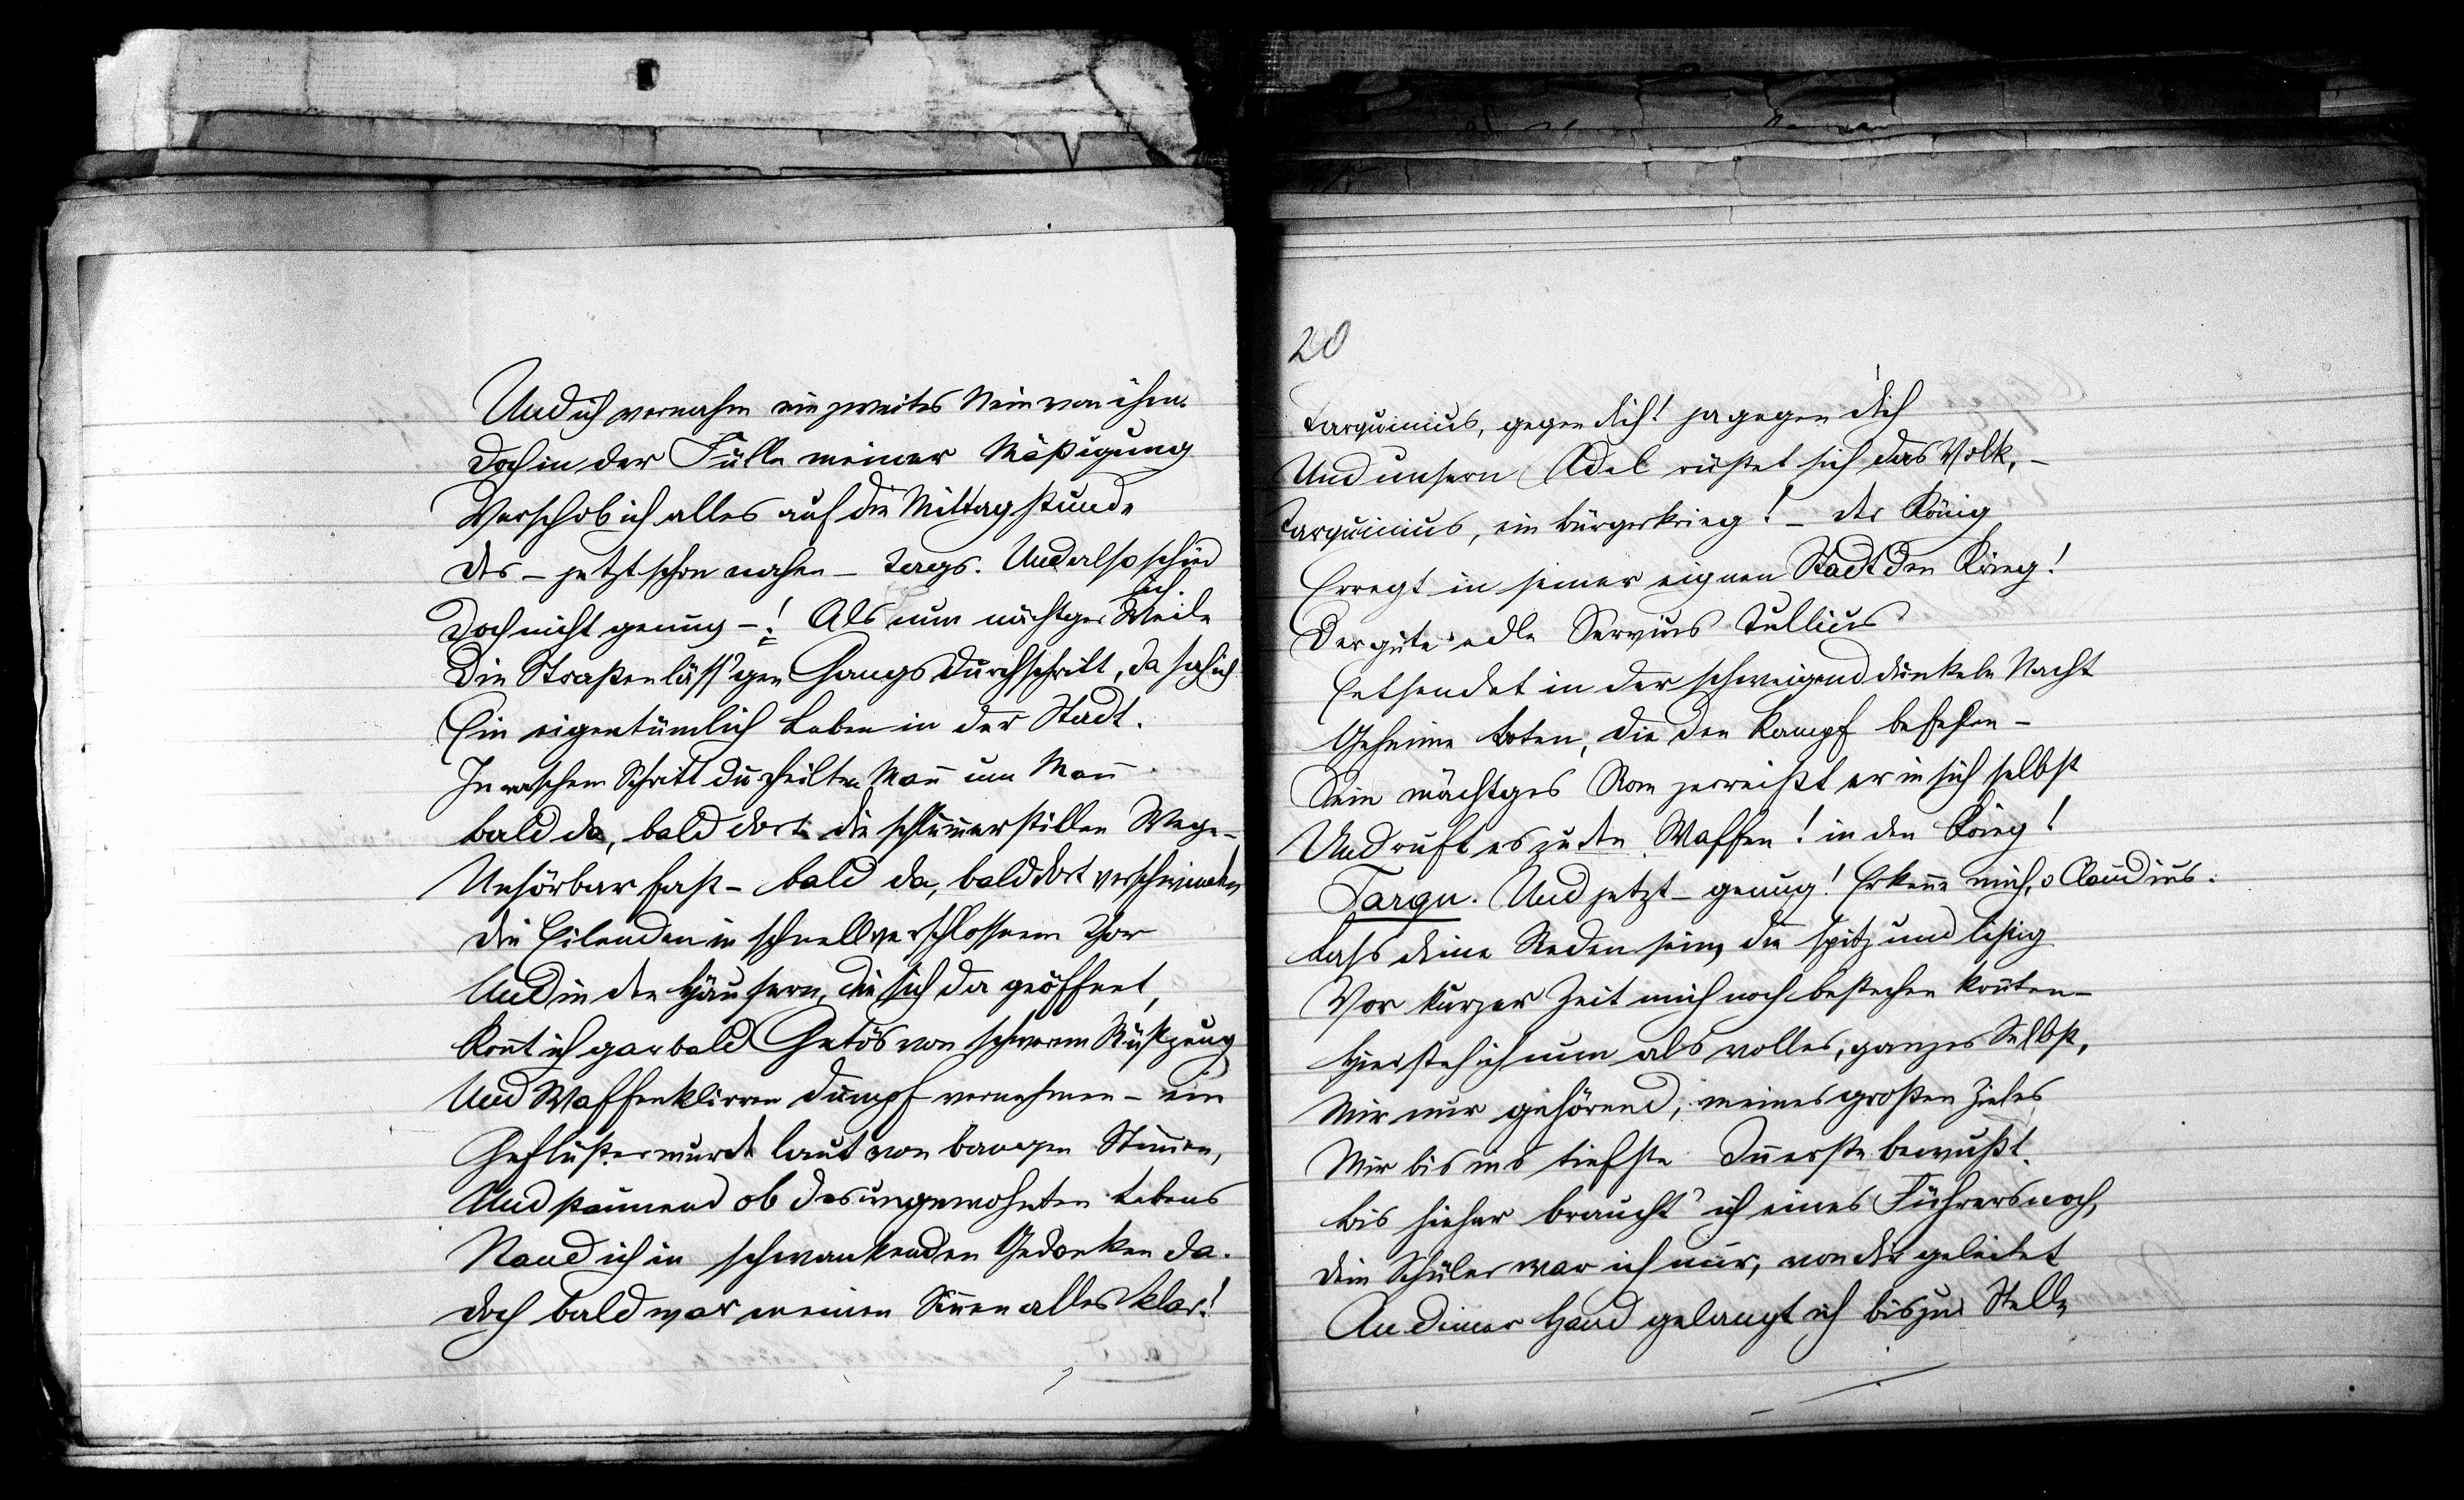 Und ich vernahm ein zweites Nein von ihm.
Doch in der Fülle meiner Mäßigung
Verschob ich alles auf die Mittagstunde
Des – jetzt schon nahen – Tags. Und also schied
ich.
Doch nicht genug –! Als nun nächtger Weile
Die Straßen läss'gen Gangs durchschritt, da sah ich
Ein eigentümlich Leben in der Stadt.
In raschem Schritt durcheilten Mañ um Mañ
Bald da, bald dort die schlum̃erstillen Wege –
Unhörbar fast – bald da, bald dort verschwinden
Die Eilenden in schnellverschlossnem Thor
Und in den Häusern, die sich da geöffnet,
Koñt ich gar bald Getös von schwerem Rüstzeug
Und Waffenklirren dumpf vernehmen – ein
Geflüster wurde laut von bangen Stim̃en,
Und staunend ob des ungewohnten Lebens
Stand ich in schwankenden Gedanken da.
Doch bald war meinen Siñen alles klar!
20
Tarquinius, gegen dich! ja gegen dich
Und unsern Adel rüstet sich das Volk, –
Tarquinius, ein Bürgerkrieg! – der König
Erregt in seiner eignen Stadt den Krieg!
Der gute edle Servius Tullius
Entsendet in der schweigend dunkeln Nacht
Geheime Boten, die den Kampf befehlen –
Sein mächtges Rom zerreißt er in sich selbst
Und ruft es zu den Waffen! in den Krieg!
Tarqu. Und jetzt – genug! Erkeñe mich, o Claudius.
Lass deine Reden sein, die spitz und listig
Vor kurzer Zeit mich noch bestechen koñten –
Hier steh ich nun als volles, ganzes Selbst,
Mir nur gehörend, meines großen Zieles
Mir bis ins tiefste Iñerste bewußt.
Bis hieher braucht' ich eines Führers noch,
Dein Schüler war ich nur, von dir geleitet
An deiner Hand gelangt ich bis zur Stelle